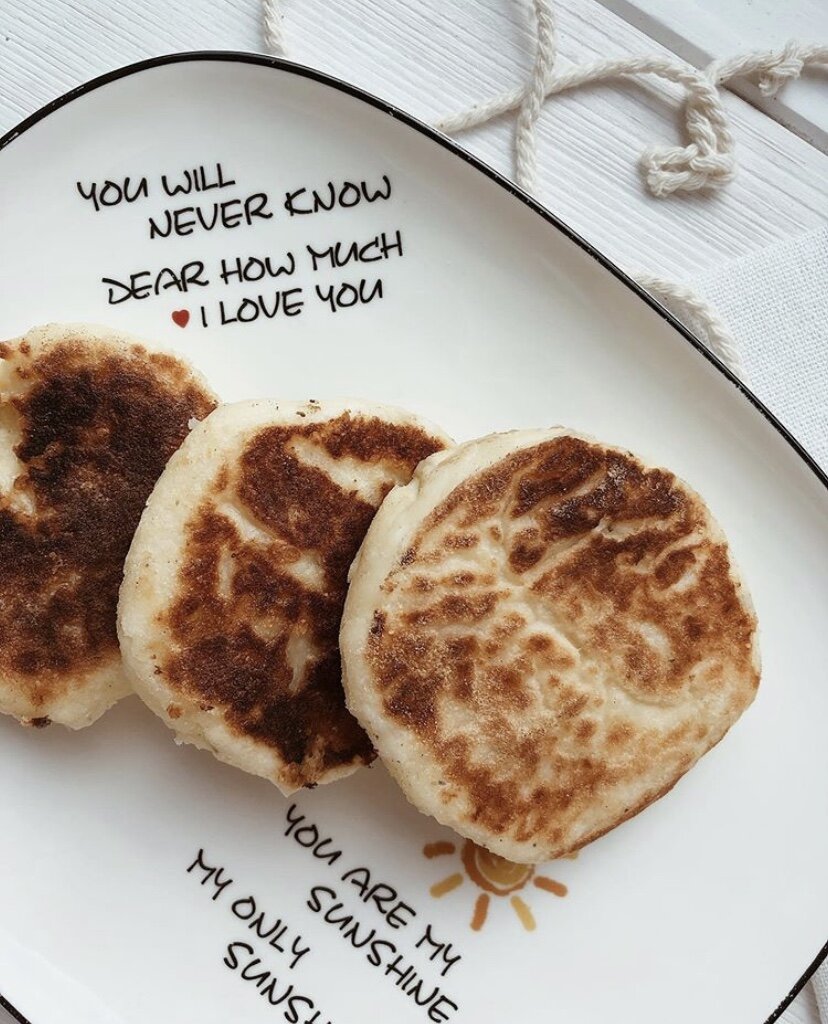 YOU WILL
NEVER KNOW
DEAR HOW MUCH
I LOVE YOU
YOU ARE MY
SUNSHINE
MY ONLY